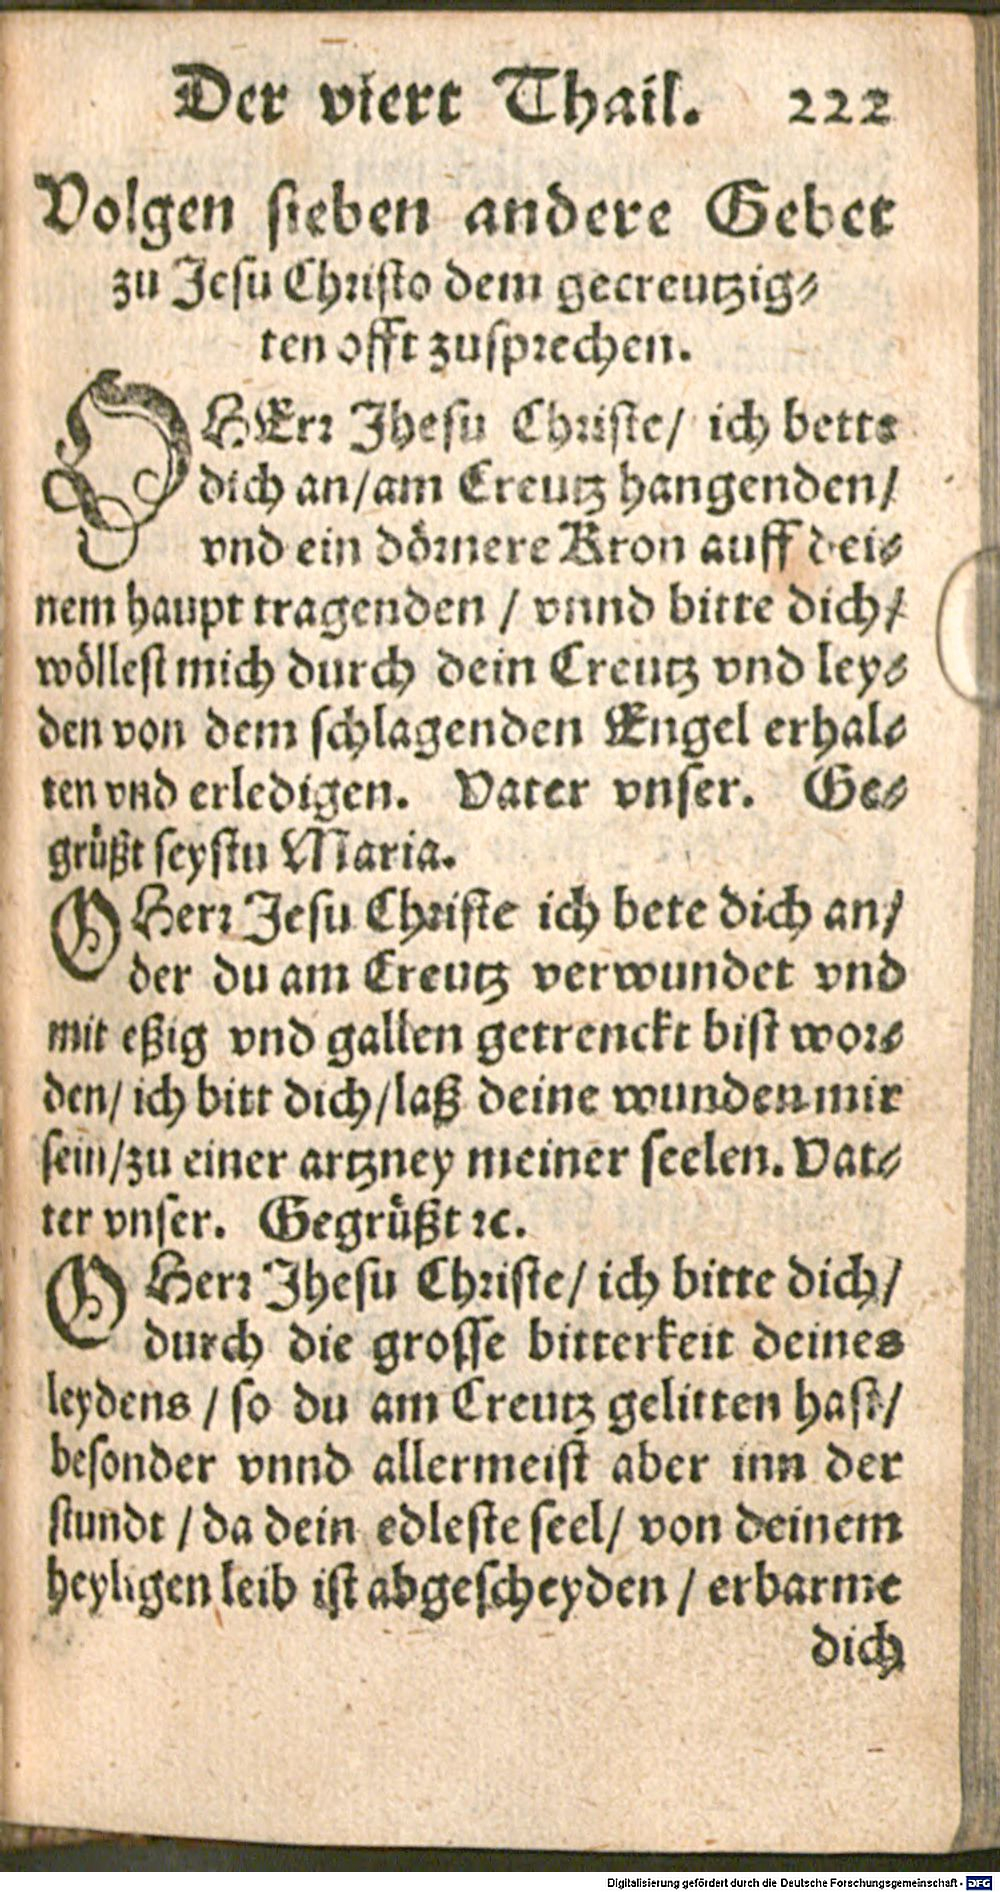 Der viert Thail. 222
Volgen sieben andere Gebet
zu Jesu Christo dem gecreutzig⸗
ten offt zusprechen.
O HErr Jhesu Christe/ ich bette
dich an/ am Creutz hangenden/
vnd ein dörnere Kron auff dei⸗
nem haupt tragenden / vnnd bitte dich/
wöllest mich durch dein Creutz vnd ley⸗
den von dem schlagenden Engel erhal⸗
ten vnd erledigen. Vater vnser. Ge⸗
grüßt seystu Maria.
O Herr Jesu Christe ich bete dich an/
der du am Creutz verwundet vnd
mit eßig vnd gallen getrenckt bist wor⸗
den/ ich bitt dich/ laß deine wunden mir
sein/ zu einer artzney meiner seelen. Vat⸗
ter vnser. Gegrüßt ꝛc.
O Herr Jhesu Christe/ ich bitte dich/
durch die grosse bitterkeit deines
leydens / so du am Creutz gelitten hast/
besonder vnnd allermeist aber inn der
stundt / da dein edleste seel/ von deinem
heyligen leib ist abgescheyden / erbarme
dich
Digitalisierung gefördert durch die Deutsche Forschungsgemeinschaft - DFG